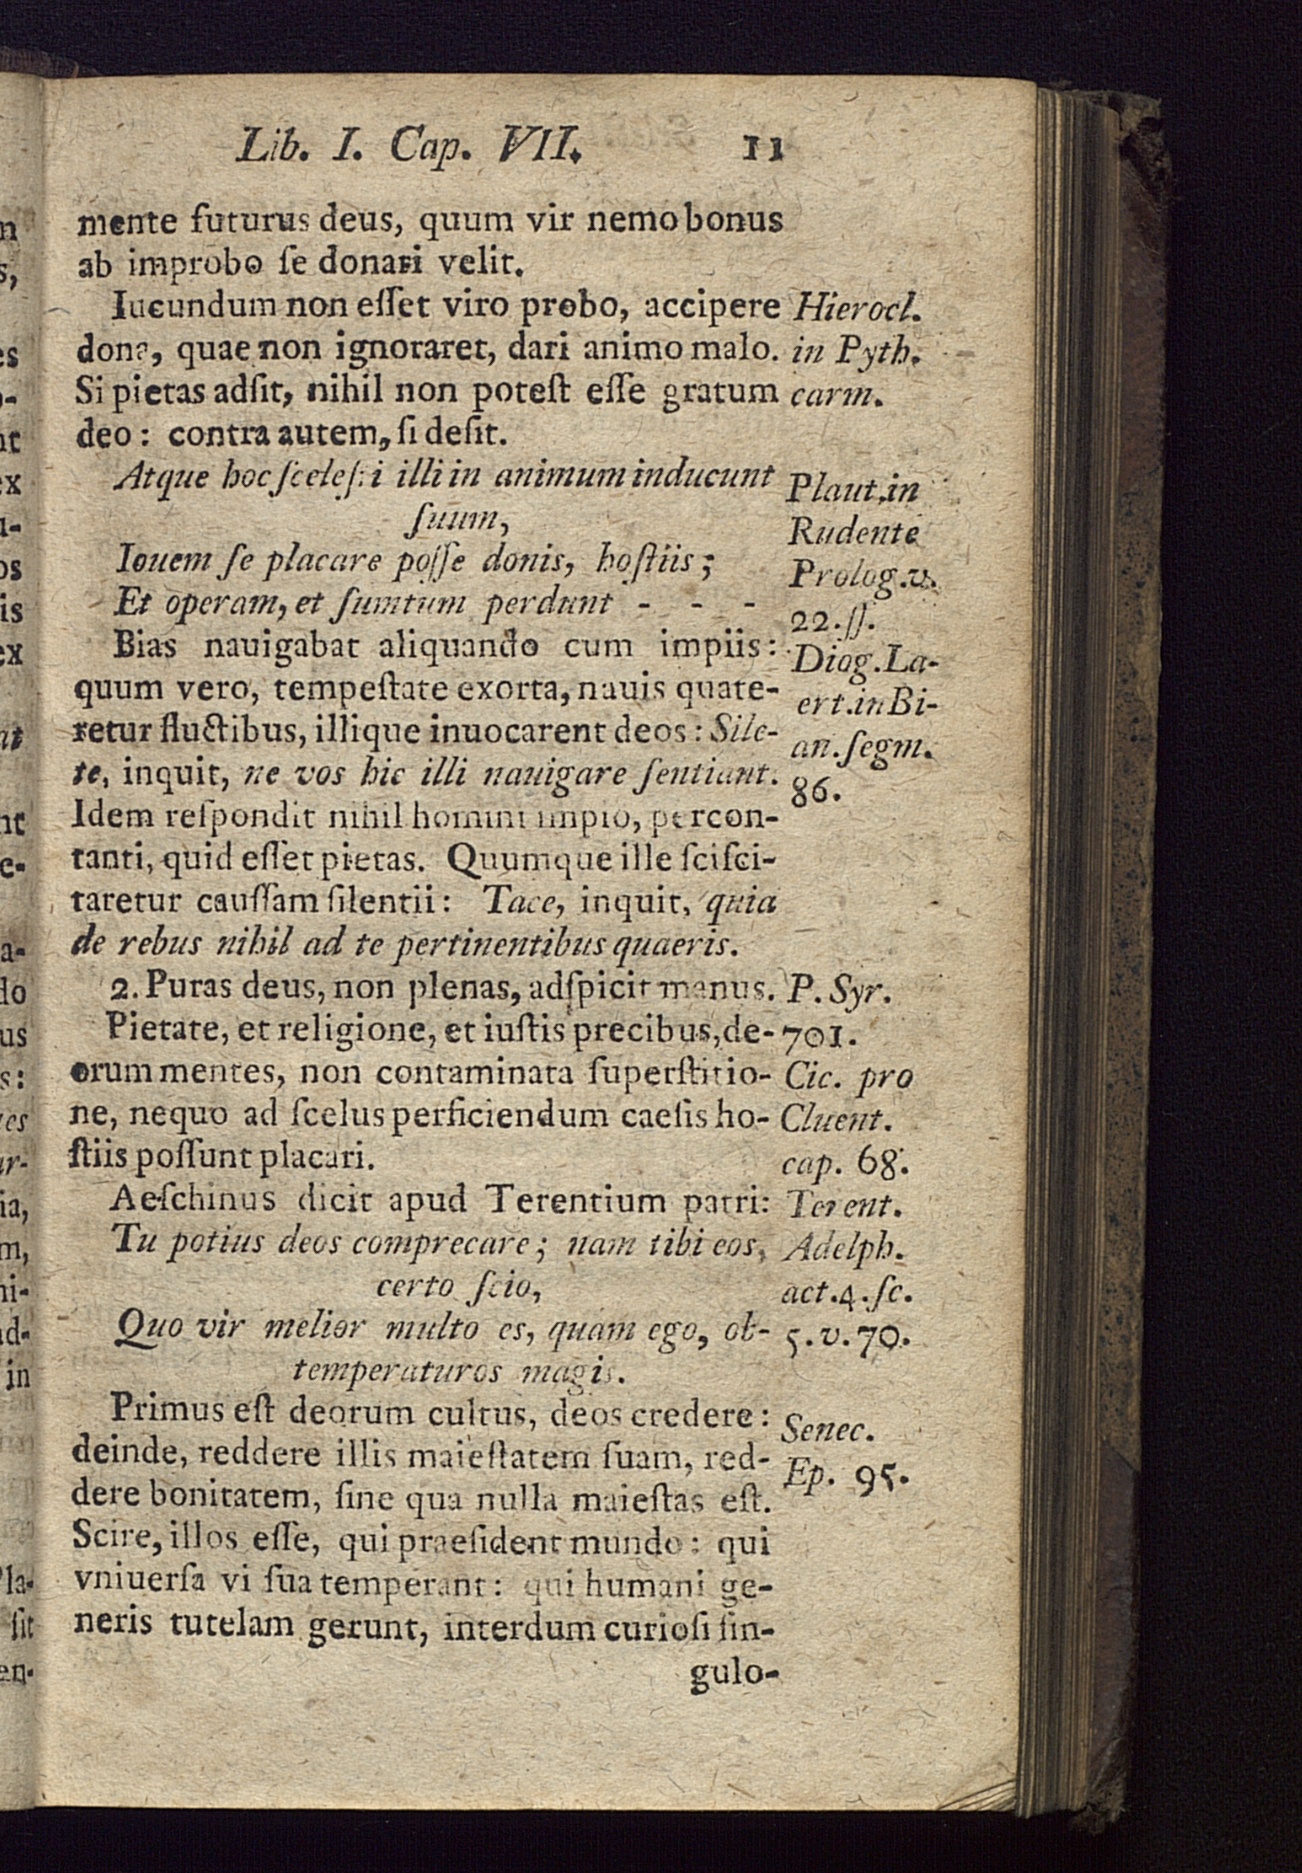 Lib. I. Cap. VII. 11
mente futurus deus, quum vir nemo bonus
ab improbo ſe donari velit.
Iucundum non eſſet viro probo, accipere
dona, quae non ignoraret, dari animo malo.
Si pietas adſit, nihil non poteſt eſſe gratum
deo: contra autem, ſi deſit.
Hierocl.
in Pyth.
carm.
Atque hoc ſceleſti illi in animum inducunt
ſuum,
Iouem ſe placare poſſe donis, hoſtiis;
Et operam, et ſumtum perdunt - - -
Plaut. in
Rudente
Prolog. v.
22. ſſ.
Bias nauigabat aliquando cum impiis:
quum vero, tempeſtate exorta, nauis quate-
retur fluctibus, illique inuocarent deos: Sile-
te, inquit, ne vos hic illi nauigare ſentiant.
Idem reſpondit nihil homini impio, percon-
tanti, quid eſſet pietas. Quumque ille ſciſci-
taretur cauſſam ſilentii: Tace, inquit, quia
de rebus nihil ad te pertinentibus quaeris.
Diog. La-
ert. in Bi-
an. ſegm.
86.
2. Puras deus, non plenas, adſpicit manus.
P. Syr.
701.
Pietate, et religione, et iuſtis precibus, de-
orum mentes, non contaminata ſuperſtitio-
ne, nequo ad ſcelus perficiendum caeſis ho-
ſtiis poſſunt placari.
Cic. pro
Cluent.
cap. 68.
Aeſchinus dicit apud Terentium patri:
Tu potius deos comprecare; nam tibi eos,
certo ſcio,
Quo vir melior multo es, quam ego, ob-
temperaturos magis.
Terent.
Adelph.
act. 4. ſc.
5. v. 70.
Primus eſt deorum cultus, deos credere:
deinde, reddere illis maieſtatem ſuam, red-
dere bonitatem, ſine qua nulla maieſtas eſt.
Scire, illos eſſe, qui praeſident mundo: qui
vniuerſa vi ſua temperant: qui humani ge-
neris tutelam gerunt, interdum curioſi ſin-
gulo-
Senec.
Ep. 95.